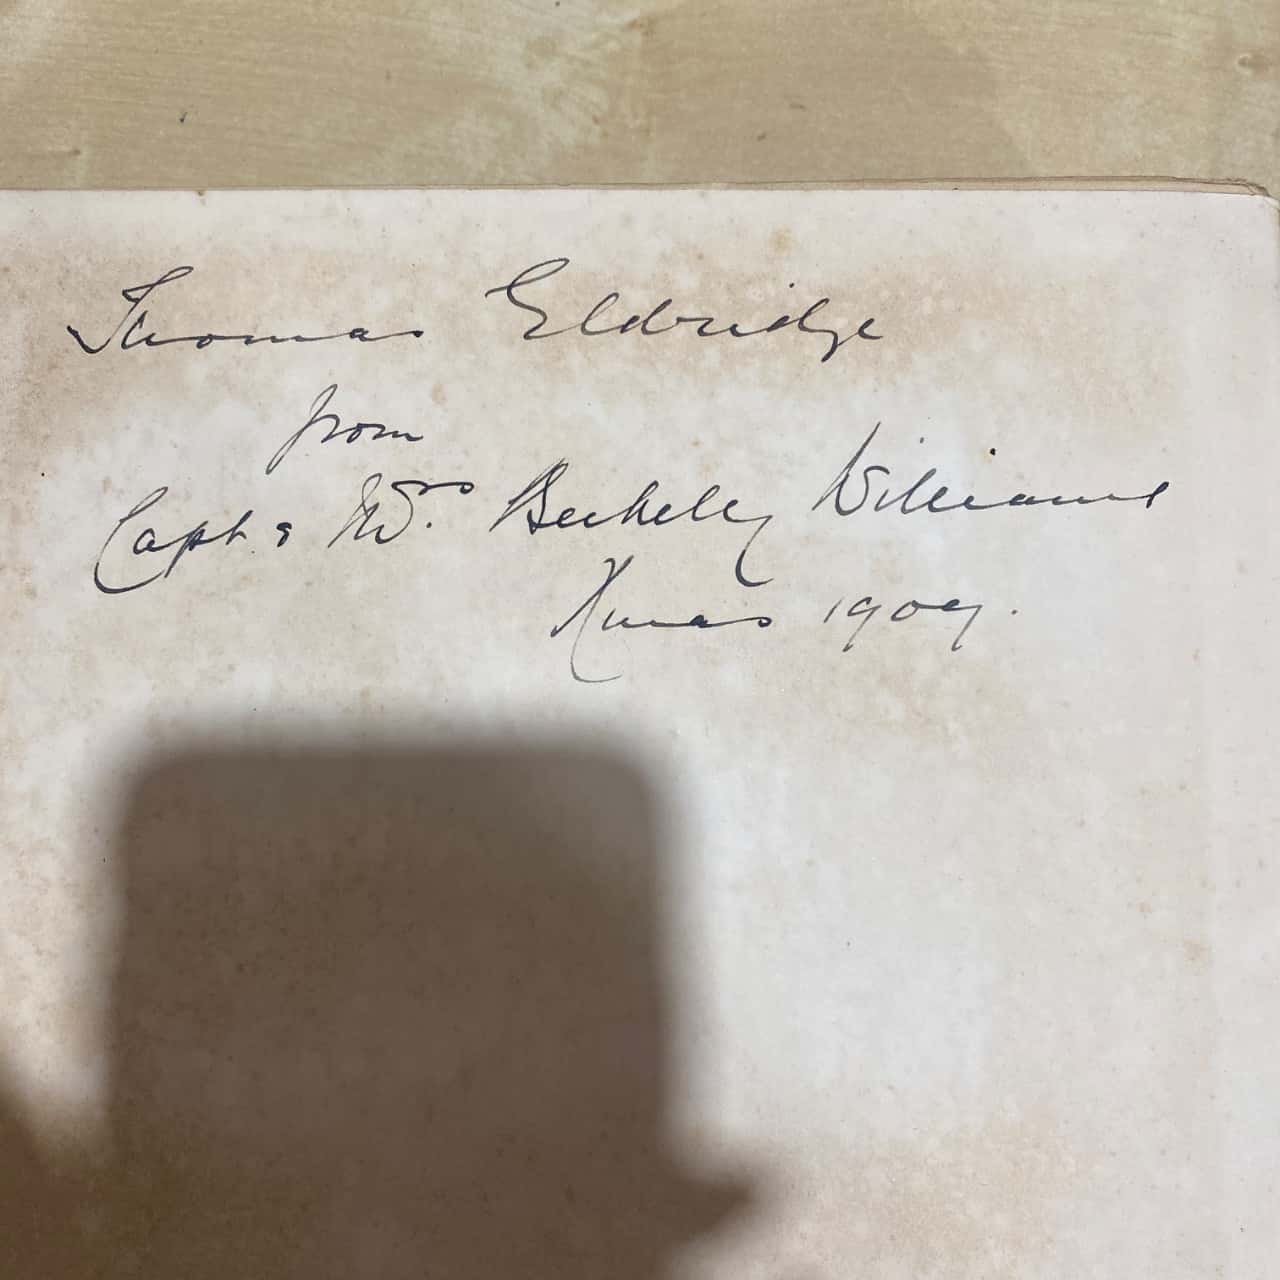 Thomas Eldridge
from
Capt & Mrs. Berkeley Williams
Xmas 1909.